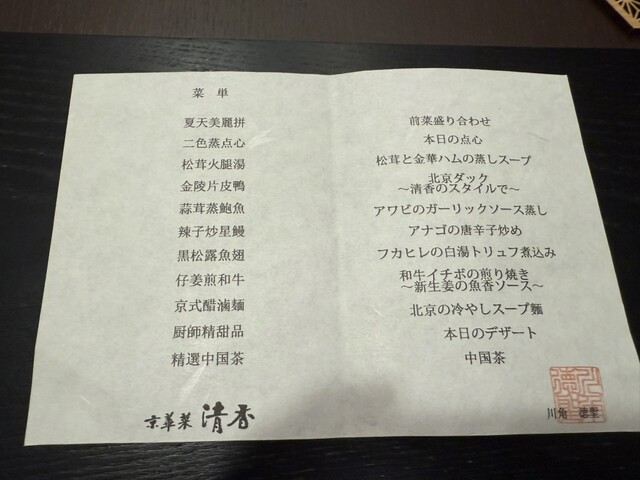 菜 単
夏天美麗拼
二色蒸点心
松茸火腿湯
金陵片皮鴨
蒜茸蒸鮑魚
辣子炒星鰻
黒松露魚翅
仔姜煎和牛
京式醋滷麺
厨師精甜品
精選中国茶
京華菜 清香
前菜盛り合わせ
本日の点心
松茸と金華ハムの蒸しスープ
北京ダック
～清香のスタイルで～
アワビのガーリックソース蒸し
アナゴの唐辛子炒め
フカヒレの白湯トリュフ煮込み
和牛イチボの煎り焼き
～新生姜の魚香ソース～
北京の冷やしスープ麺
本日のデザート
中国茶
川角